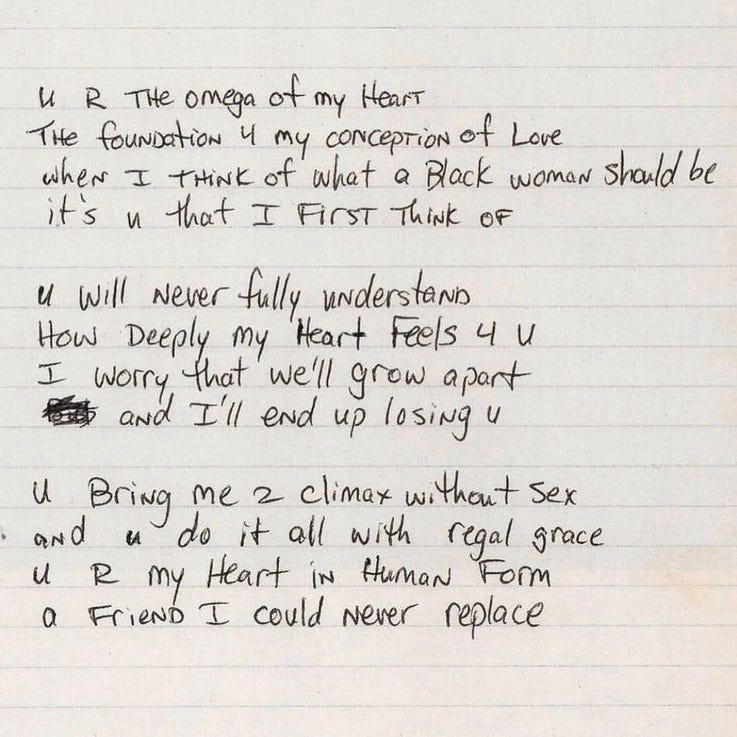 U R THE omega of my Heart
THE foundation 4 my conception of Love
when I THINK of what a Black woman should be
it's u that I First Think of
u will never fully understand
How Deeply my Heart Feels 4 U
I worry that we'll grow apart
and I'll end up losing u
U Bring me 2 climax without sex
and u do it all with regal grace
U R my Heart in Human Form
a Friend I could never replace